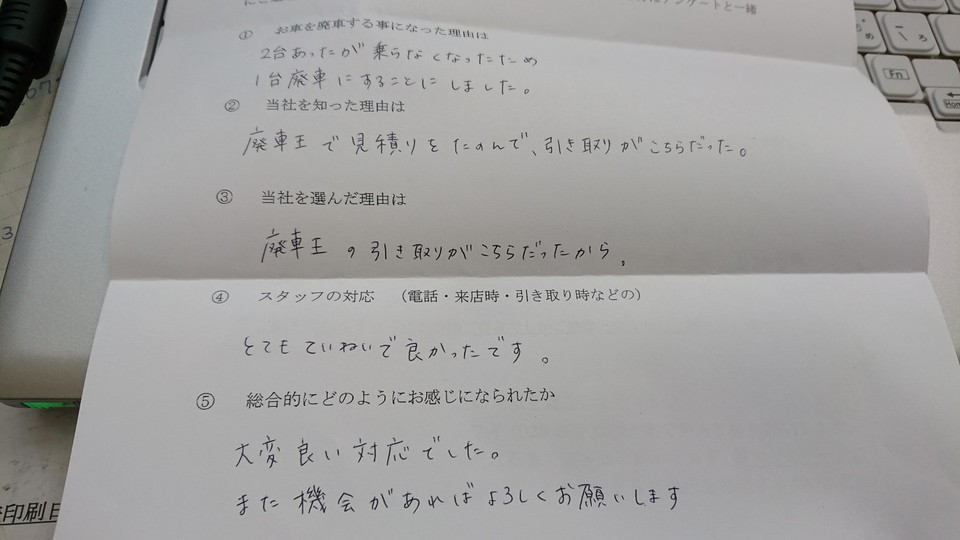 アンケートと一緒
① お車を廃車する事になった理由は
2台あったが乗らなくなったため
1台廃車にすることにしました。
② 当社を知った理由は
廃車王で見積りをたのんで、引き取りがこちらだった。
③ 当社を選んだ理由は
廃車王の引き取りがこちらだったから。
④ スタッフの対応 （電話・来店時・引き取り時などの）
とてもていねいで良かったです。
⑤ 総合的にどのようにお感じになられたか
大変良い対応でした。
また機会があればよろしくお願いします
印刷日
Fn
Home
め
ろ
3